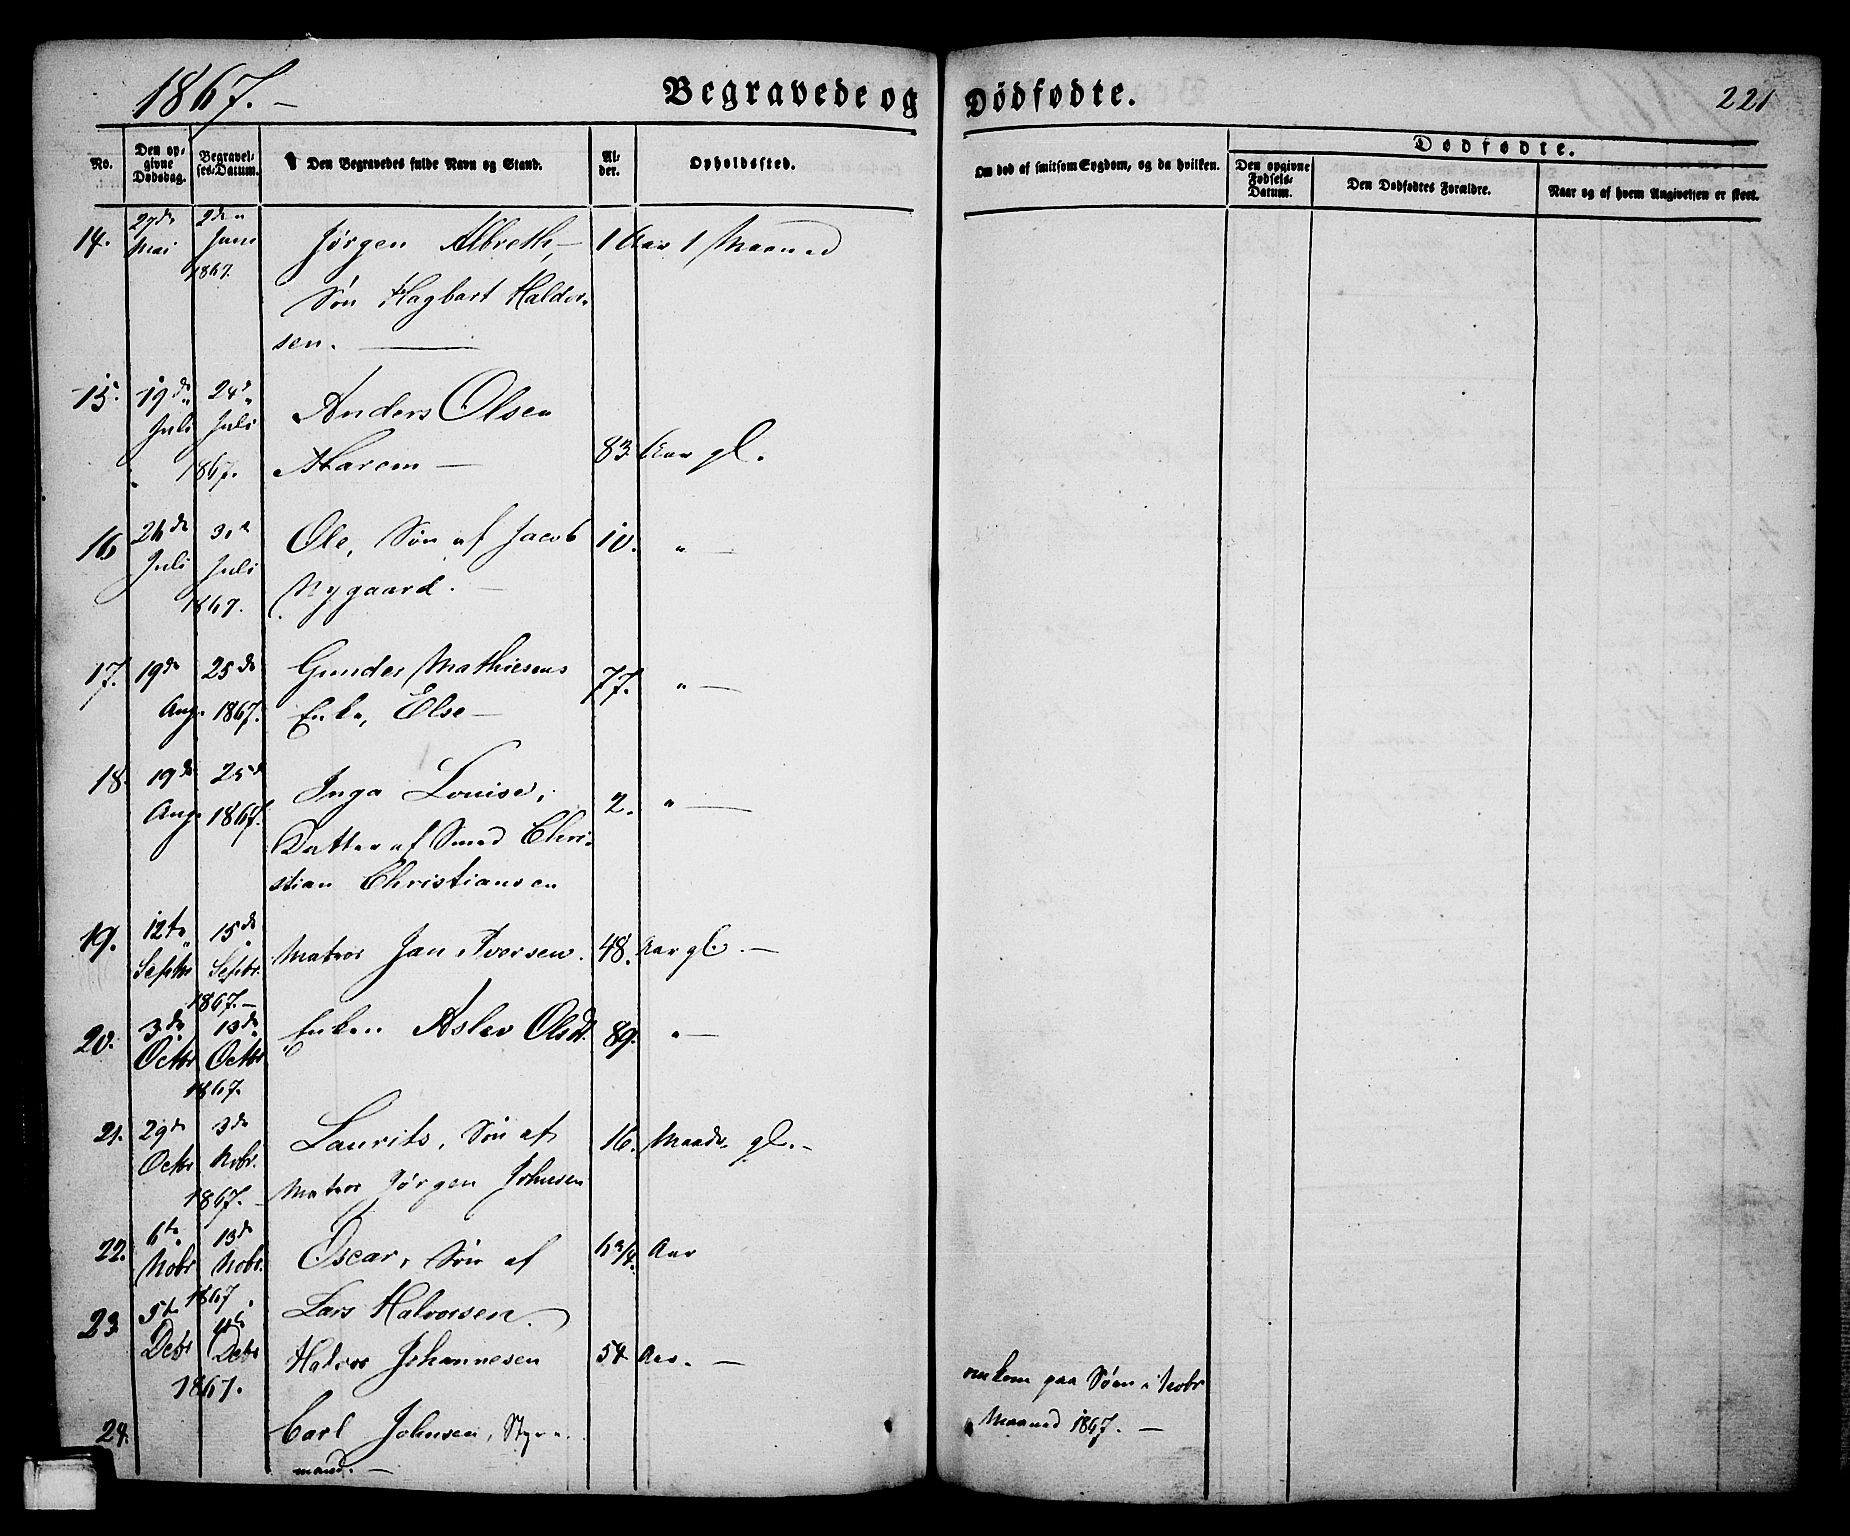 1867. –
Begravede og Dødfødte.
221
No.
Den op-
givne
Dødsdag.
Begravel-
ses-Datum.
Den Begravedes fulde Navn og Stand.
Al-
der.
Opholdssted.
Om død af smitsom Sygdom, og da hvilken.
Dødfødte.
Den opgivne
Fødsels-
Datum.
Den Dødfødtes Forældre.
Naar og af hvem Angivelsen er skeet.
14. 27de Mai 2den Juni 1867. Jørgen Albreth, 1 Aar 1 Maaned
Søn Hagbart Haldor-
sen. —
15. 19de Juli 24de Juli 1867. Anders Olsen
Harem — 83 Aar gl.
16 26de Juli 30te Juli 1867. Ole, Søn af Jacob 10. " —
Nygaard. —
17. 19de Aug. 25de 1867. Gunder Mathiesens 77. " —
Enke, Else —
18. 19de Aug. 25de 1867. Inga Louise, 2. " —
Datter af Smed Chri-
stian Christiansen
19. 12te Septbr 15de Septbr. 1867. — Matros Jan Iversen. 48. Aar gl. —
20. 3de Octbr 13de Octbr 1867. Enken Aslev Olsdt. 89. " —
21. 29de Octbr 3de Novbr. 1867. – Laurits, Søn af 16. Maadr. gl. –
Matros Jørgen Johnsen
22. 6te Novbr 13de Novbr. 1867. Oscar, Søn af 6 3/4. Aar
Lars Halvorsen.
23 5te Decbr Decbr 1867. Halvor Johannesen 54 Aar. —
24. Carl Johnsen, Styr-
mand. –
omkom paa Søen i Novbr
Maaned 1867. —